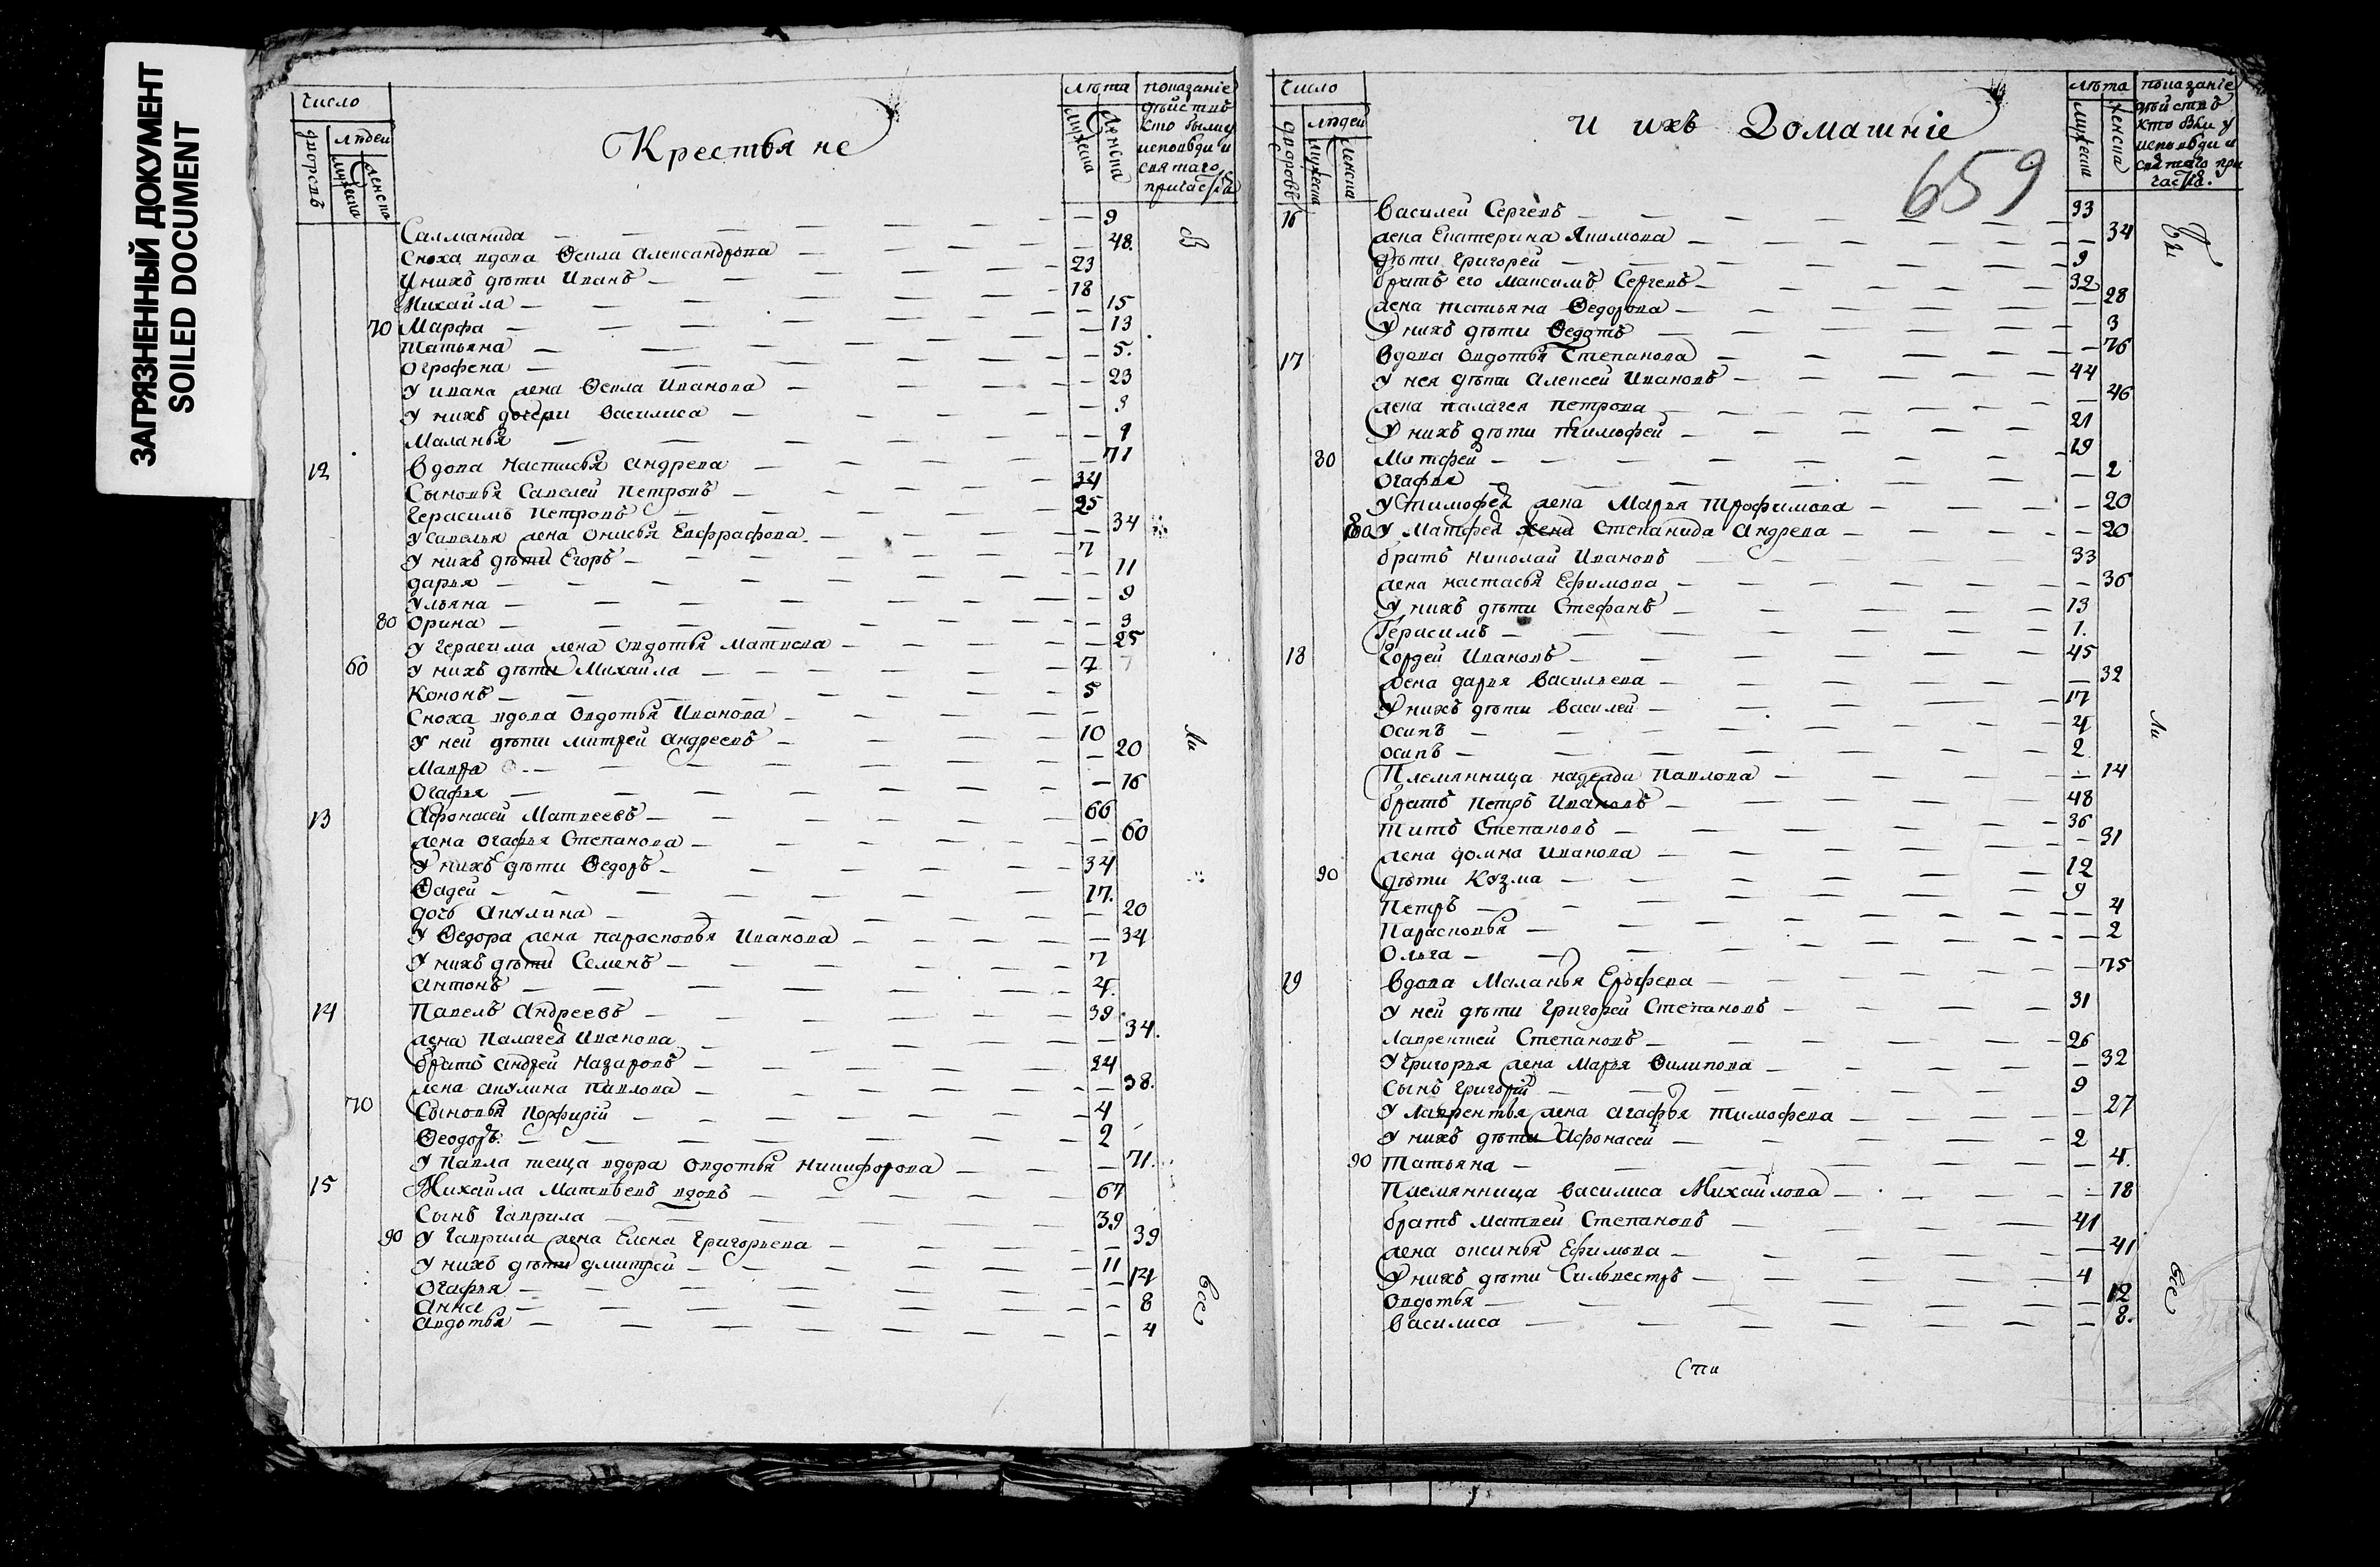 ЗАГРЯЗНЕННЫЙ ДОКУМЕНТ
SOILED DOCUMENT
число
дворовъ
людей
мужеска
женска
Крестьяне
лѣта
мужеска
женска
показаніе
дѣйствъ
кто былъ у
исповѣди и
святаго
причастія
Салманида — 9
Сноха вдова Ѳекла Александрова — 48.
У нихъ дѣти Иванъ — 23
Михайла — 18
70 Марфа — 15
Татьяна — 13
Огрофена — 5.
У Ивана жена Ѳекла Иванова — 23
У нихъ дочери Василиса — 3
Маланья — 1
12 Вдова Настасья Андрева — 71
Сыновья Савелей Петровъ — 34
Герасимъ Петровъ — 25
У Савелья жена Онисья Евфрафова — 34
У нихъ дѣти Егоръ — 7
Дарья — 11
Ульяна — 9
80 Орина — 3
У Герасима жена Овдотья Матвева — 25
60 У нихъ дѣти Михайла — 7
Кононъ — 5
Сноха вдова Овдотья Иванова —
У ней дѣти Митрей Андреевъ — 10
Мавра — 20
Огафья — 16
13 Афонасей Матвеевъ — 66
жена Огафья Степанова — 60
У нихъ дѣти Ѳедоръ — 34
Ѳадей — 17.
дочь Акулина — 20
У Ѳедора жена Парасковья Иванова — 34
У нихъ дѣти Семенъ — 7
Антонъ — 4.
14 Павелъ Андреевъ — 39
жена Палагея Иванова — 34.
братъ Андрей Назаровъ — 34
жена Акулина Павлова — 38.
70 Сыновья Порфирій — 4
Ѳеодоръ. — 2
У Павла теща вдова Овдотья Никифорова — 71.
15 Михайла Матвѣевъ вдовъ — 67
Сынъ Гаврила — 39
90 У Гаврила жена Елена Григорьева — 39
У нихъ дѣти Дмитрей — 11
Огафья — 14
Анна — 8
Авдотья — 4
В
ли
все
число
дворовъ
людей
мужеска
женска
И ихъ Домашніе
659
лѣта
мужеска
женска
показаніе
дѣйствъ
кто былъ у
исповѣди и
святаго при
частія.
16 Василей Сергѣевъ — 33
жена Екатерина Якимова — 34
дѣти Григорей — 9
братъ его Максимъ Сергеевъ — 32
жена Татьяна Ѳедорова — 28
У нихъ дѣти Ѳедотъ — 3
17 Вдова Овдотья Степанова — 76
У нея дѣти Алексей Ивановъ — 44
жена Палагея Петрова — 46
У нихъ дѣти Тимофей — 21
80 Матфей — 19
Огафья — 2
У Тимофея жена Марья Трофимова — 20
80 У Матфея жена Степанида Андрева — 20
братъ Николай Ивановъ — 33
жена Настасья Ефимова — 36
У нихъ дѣти Стефанъ — 13
Герасимъ — 1.
18 Гордей Ивановъ — 45
жена Дарья Васильева — 32
У нихъ дѣти Василей — 17
Осипъ — 4
Осипъ — 2
Племянница Надежда Павлова — 14
братъ Петръ Ивановъ — 48
Титъ Степановъ — 36
жена Домна Иванова — 31
90 дѣти Козма — 12
Петръ — 9
Парасковья — 4
Ольга — 2
19 Вдова Маланья Ерофева — 75
У ней дѣти Григорей Степановъ — 31
Лаврентей Степановъ — 26
У Григорья жена Марья Филипова — 32
Сынъ Григорій — 9
У Лаврентья жена Агафья Тимофева — 27
У нихъ дѣти Афонасей — 2
90 Татьяна — 4.
Племянница Василиса Михайлова — 18
братъ Матвей Степановъ — 41
жена Оксинья Ефимова — 41
У нихъ дѣти Сильвестръ — 4
Овдотья — 12
Василиса — 8.
Бы
ли
все
Сти